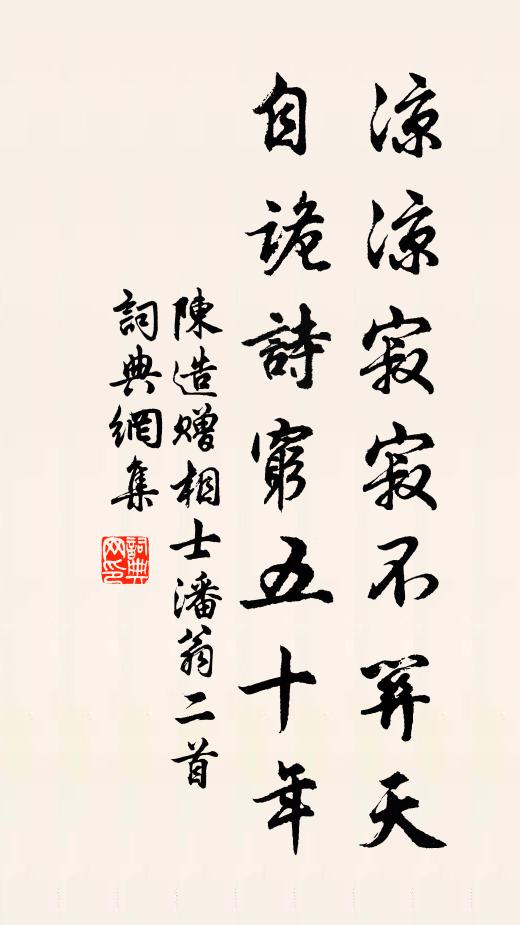 涼涼寂寂不關天
自詭詩窮五十年
陳造贈相士潘翁二首
詞典網集
詞典
网印